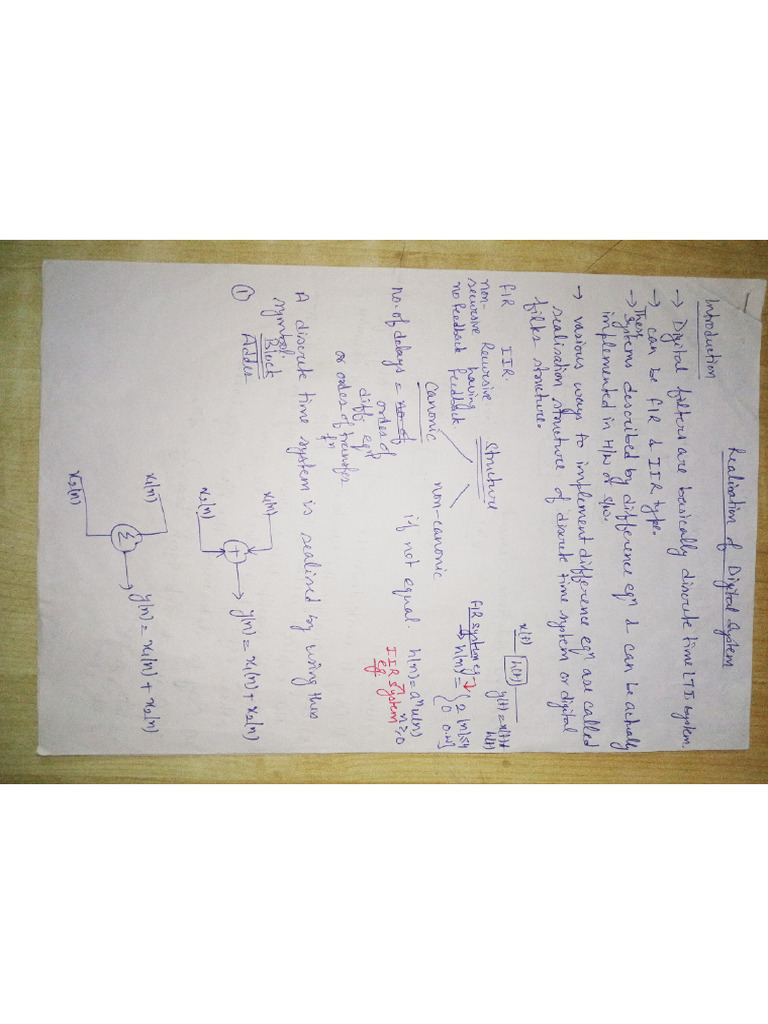 Realisation of Digital System
Introduction
→ Digital filters are basically discrete time LTI system.
→ can be FIR & IIR type.
→ These systems described by difference eqn & can be actually
implemented in H/W or S/W.
→ various ways to implement difference eqn are called
realisation structure of discrete time system or digital
filter structure.
x(t) h(t) y(t) = x(t)*h(t)
FIR IIR.
non-recursive Recursive
no feedback having feedback.
Structure
FIR system eg →
h(n) = { 2 |n|≤4
0 o.w}
canonic non-canonic
no. of delays = no. of
order of
diff eqn
or order of transfer
fn
if not equal.
h(n) = aⁿ u(n)
n≥0
IIR system
eg
A discrete time system is realised by using these
symbol:
Block
① Adder
x₁(n)
x₂(n)
+ → y(n) = x₁(n) + x₂(n)
x₁(n)
x₂(n)
Σ → y(n) = x₁(n) + x₂(n)